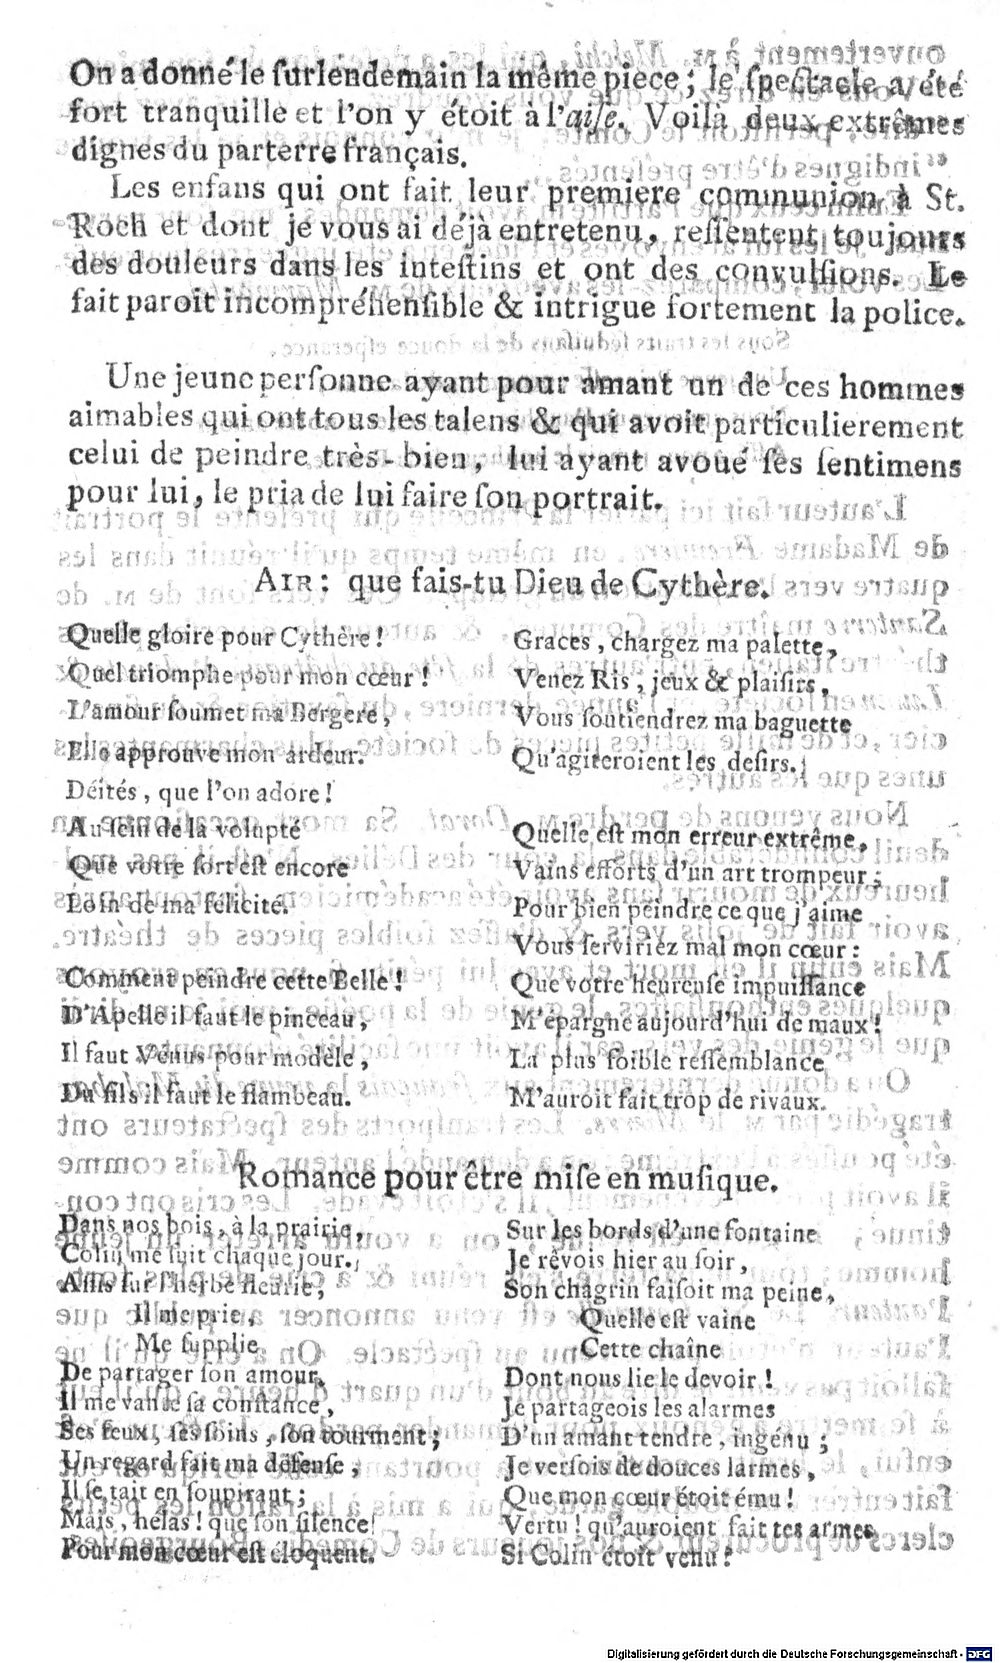 On a donné le ſurlendemain la même piece; le ſpectacle a été
fort tranquille et l'on y étoit à l'aiſe. Voilà deux extrêmes
dignes du parterre français.
Les enfans qui ont fait leur premiere communion à St.
Roch et dont je vous ai déjà entretenu, reſſentent toujours
des douleurs dans les inteſtins et ont des convulſions. Le
fait paroit incompréhenſible & intrigue fortement la police.
Une jeune perſonne ayant pour amant un de ces hommes
aimables qui ont tous les talens & qui avoit particulierement
celui de peindre très-bien, lui ayant avoué ſes ſentimens
pour lui, le pria de lui faire ſon portrait.
AIR: que fais-tu Dieu de Cythère.
Quelle gloire pour Cythère!
Quel triomphe pour mon cœur!
L'amour ſoumet ma Bergere,
Elle approuve mon ardeur.
Déités, que l'on adore!
Au ſein de la volupté
Que votre ſort eſt encore
Loin de ma félicité.
Comment peindre cette Belle!
D'Apelle il faut le pinceau,
Il faut Vénus pour modèle,
Du fils il faut le flambeau.
Graces, chargez ma palette,
Venez Ris, jeux & plaiſirs,
Vous ſoutiendrez ma baguette
Qu'agiteroient les deſirs.
Quelle eſt mon erreur extrême,
Vains efforts d'un art trompeur;
Pour bien peindre ce que j'aime
Vous ſerviriez mal mon cœur:
Que votre heureuſe impuiſſance
M'épargne aujourd'hui de maux!
La plus foible reſſemblance
M'auroit fait trop de rivaux.
Romance pour être miſe en muſique.
Dans nos bois, à la prairie,
Colin me ſuit chaque jour.
Aſſis ſur l'herbe fleurie,
Il me prie,
Me ſupplie
De partager ſon amour.
Il me vante ſa conſtance,
Ses feux, ſes ſoins, ſon tourment;
Un regard fait ma défenſe,
Il ſe tait en ſoupirant;
Mais, hélas! que ſon ſilence
Pour mon cœur eſt éloquent.
Sur les bords d'une fontaine
Je rêvois hier au ſoir,
Son chagrin faiſoit ma peine,
Quelle eſt vaine
Cette chaîne
Dont nous lie le devoir!
Je partageois les alarmes
D'un amant tendre, ingénu;
Je verſois de douces larmes,
Que mon cœur étoit ému!
Vertu! qu'auroient fait tes armes
Si Colin étoit venu?
Digitalisierung gefördert durch die Deutsche Forschungsgemeinschaft - DFG